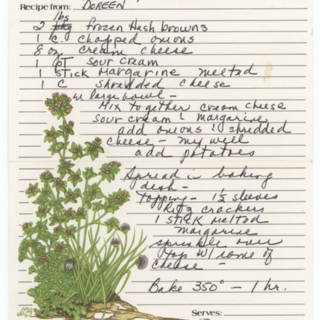 Recipe from: DOREEN
lbs
2 pkg frozen Hash browns
1 C chopped onions
8 oz cream cheese
1 pt sour cream
1 stick Margarine melted
1 C shredded cheese
in large bowl -
Mix together cream cheese
sour cream & margarine
add onions & shredded
cheese - mix well
add potatoes
Spread in baking
dish -
topping - 1½ sleeves
Ritz crackers
1 stick melted
margarine
sprinkle over
top w/ some of
cheese -
Bake 350° - 1 hr.
Serves: